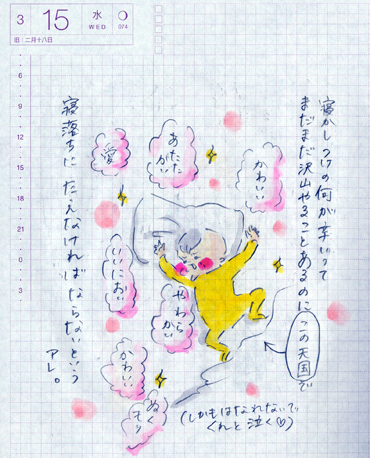 3
15
水
WED
074
旧:二月十八日
6
9
12
15
18
21
0
3
寝かしつけの何が辛いって
まだまだ沢山やることあるのに
この天国で
寝落ちにたえなければならないという
アレ。
かわいい
あたた
かい
愛
いいにおい
やわら
かい
かわいい
ぬく
もり
(しかもはなれないで
くれと泣く♡)